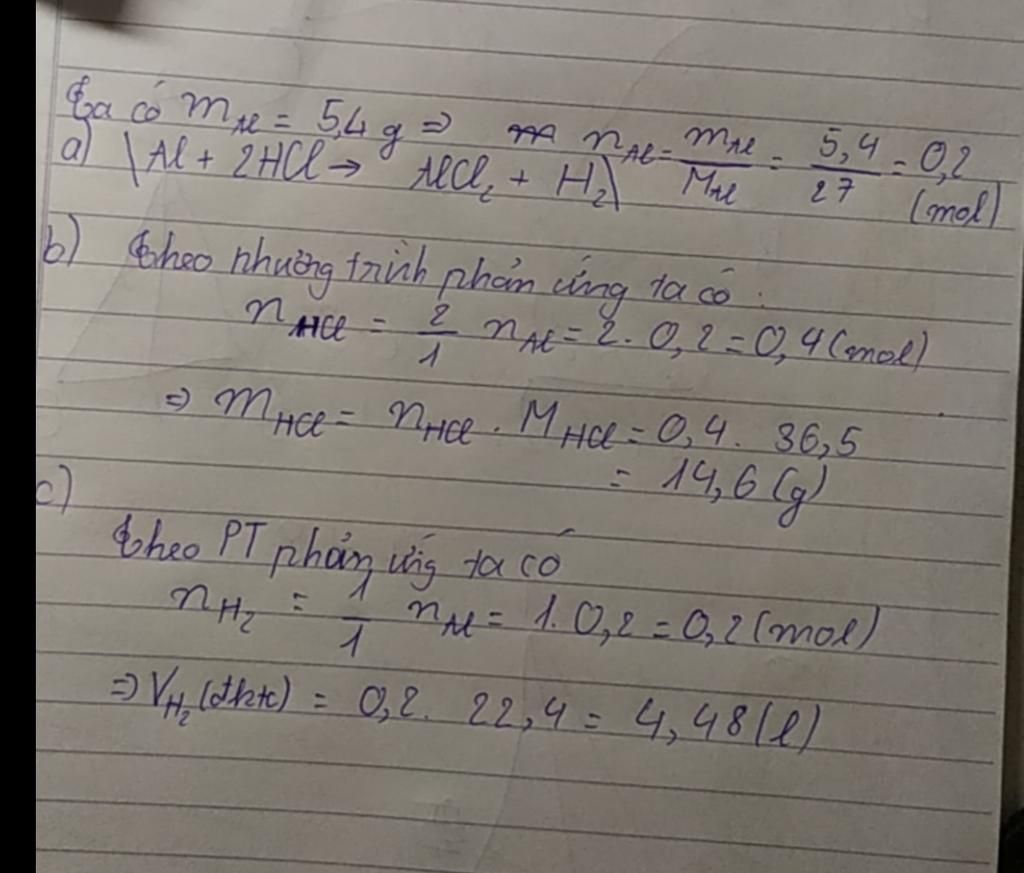 Ta có m_Al = 5,4 g ⇒ n_Al = m_Al / M_Al = 5,4 / 27 = 0,2 (mol)
a) \ Al + 2HCl → AlCl₂ + H₂ \
b) Theo phương trình phản ứng ta có :
n_HCl = 2/1 n_Al = 2. 0,2 = 0,4 (mol)
⇒ m_HCl = n_HCl . M_HCl = 0,4. 36,5
= 14,6 (g)
c)
Theo PT phản ứng ta có
n_H₂ = 1/1 n_Al = 1. 0,2 = 0,2 (mol)
⇒ V_H₂ (đktc) = 0,2. 22,4 = 4,48 (l)